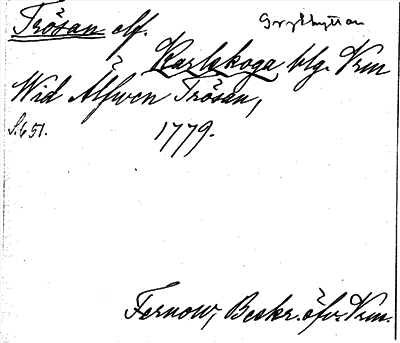 Trösan elf. Grythyttan
Karlskoga blg. Vrm
Wid Älfwen Trösan,
S. 651. 1779.
Fernow, Beskr. öfv. Vrm.